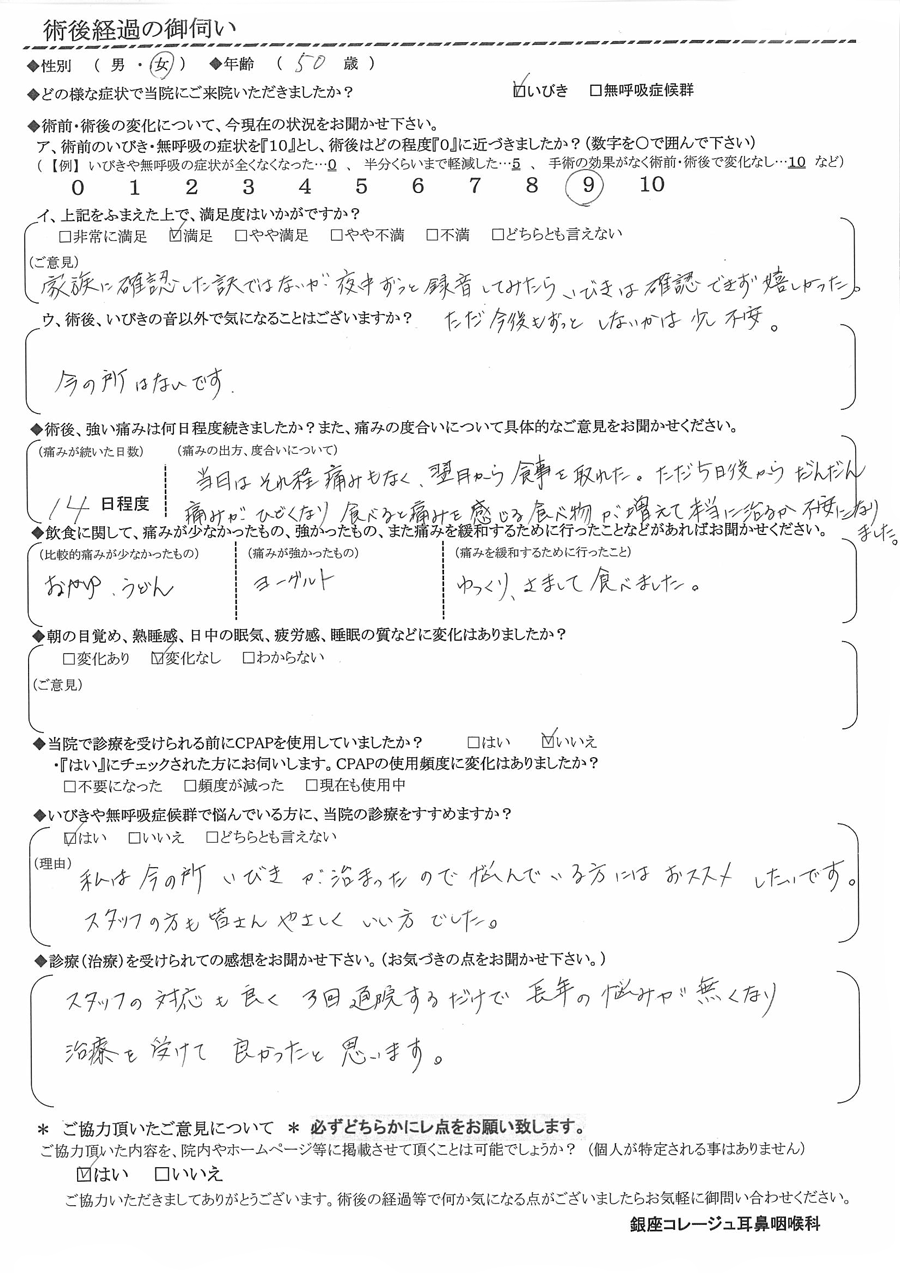 術後経過の御伺い
◆性別 ( 男 ・ 女 ) ◆年齢 ( 50 歳 )
◆どの様な症状で当院にご来院いただきましたか? ☑いびき □無呼吸症候群
◆術前・術後の変化について、今現在の状況をお聞かせ下さい。
ア、術前のいびき・無呼吸の症状を『10』とし、術後はどの程度『0』に近づきましたか?(数字を〇で囲んで下さい)
(【例】 いびきや無呼吸の症状が全くなくなった…0 、 半分くらいまで軽減した…5 、 手術の効果がなく術前・術後で変化なし…10 など)
0 1 2 3 4 5 6 7 8 9 10
イ、上記をふまえた上で、満足度はいかがですか?
□非常に満足 ☑満足 □やや満足 □やや不満 □不満 □どちらとも言えない
(ご意見)
家族に確認した訳ではないが 夜中ずっと録音してみたら いびきは確認できず嬉しかった。
ただ今後もずっと しないかは少し不安。
ウ、術後、いびきの音以外で気になることはございますか?
今の所はないです.
◆術後、強い痛みは何日程度続きましたか?また、痛みの度合いについて具体的なご意見をお聞かせください。
(痛みが続いた日数) (痛みの出方、度合いについて)
14 日程度
当日はそれ程痛みもなく、翌日から食事を取れた。ただ5日後からだんだん
痛みがひどくなり 食べると痛みを感じる食べ物が増えて本当に治るか不安になり
ました。
◆飲食に関して、痛みが少なかったもの、強かったもの、また痛みを緩和するために行ったことなどがあればお聞かせください。
(比較的痛みが少なかったもの) (痛みが強かったもの) (痛みを緩和するために行ったこと)
おかゆ、うどん ヨーグルト ゆっくり、さまして食べました。
◆朝の目覚め、熟睡感、日中の眠気、疲労感、睡眠の質などに変化はありましたか?
□変化あり ☑変化なし □わからない
(ご意見)
◆当院で診療を受けられる前にCPAPを使用していましたか? □はい ☑いいえ
・『はい』にチェックされた方にお伺いします。CPAPの使用頻度に変化はありましたか?
□不要になった □頻度が減った □現在も使用中
◆いびきや無呼吸症候群で悩んでいる方に、当院の診療をすすめますか?
☑はい □いいえ □どちらとも言えない
(理由)
私は今の所 いびきが治まったので悩んでいる方にはおススメしたいです。
スタッフの方も皆さんやさしくいい方でした。
◆診療(治療)を受けられての感想をお聞かせ下さい。(お気づきの点をお聞かせ下さい。)
スタッフの対応も良く 3回通院するだけで 長年の悩みが無くなり
治療を受けて良かったと思います。
* ご協力頂いたご意見について * 必ずどちらかにレ点をお願い致します。
ご協力頂いた内容を、院内やホームページ等に掲載させて頂くことは可能でしょうか? (個人が特定される事はありません)
☑はい □いいえ
ご協力いただきましてありがとうございます。術後の経過等で何か気になる点がございましたらお気軽に御問い合わせください。
銀座コレージュ耳鼻咽喉科